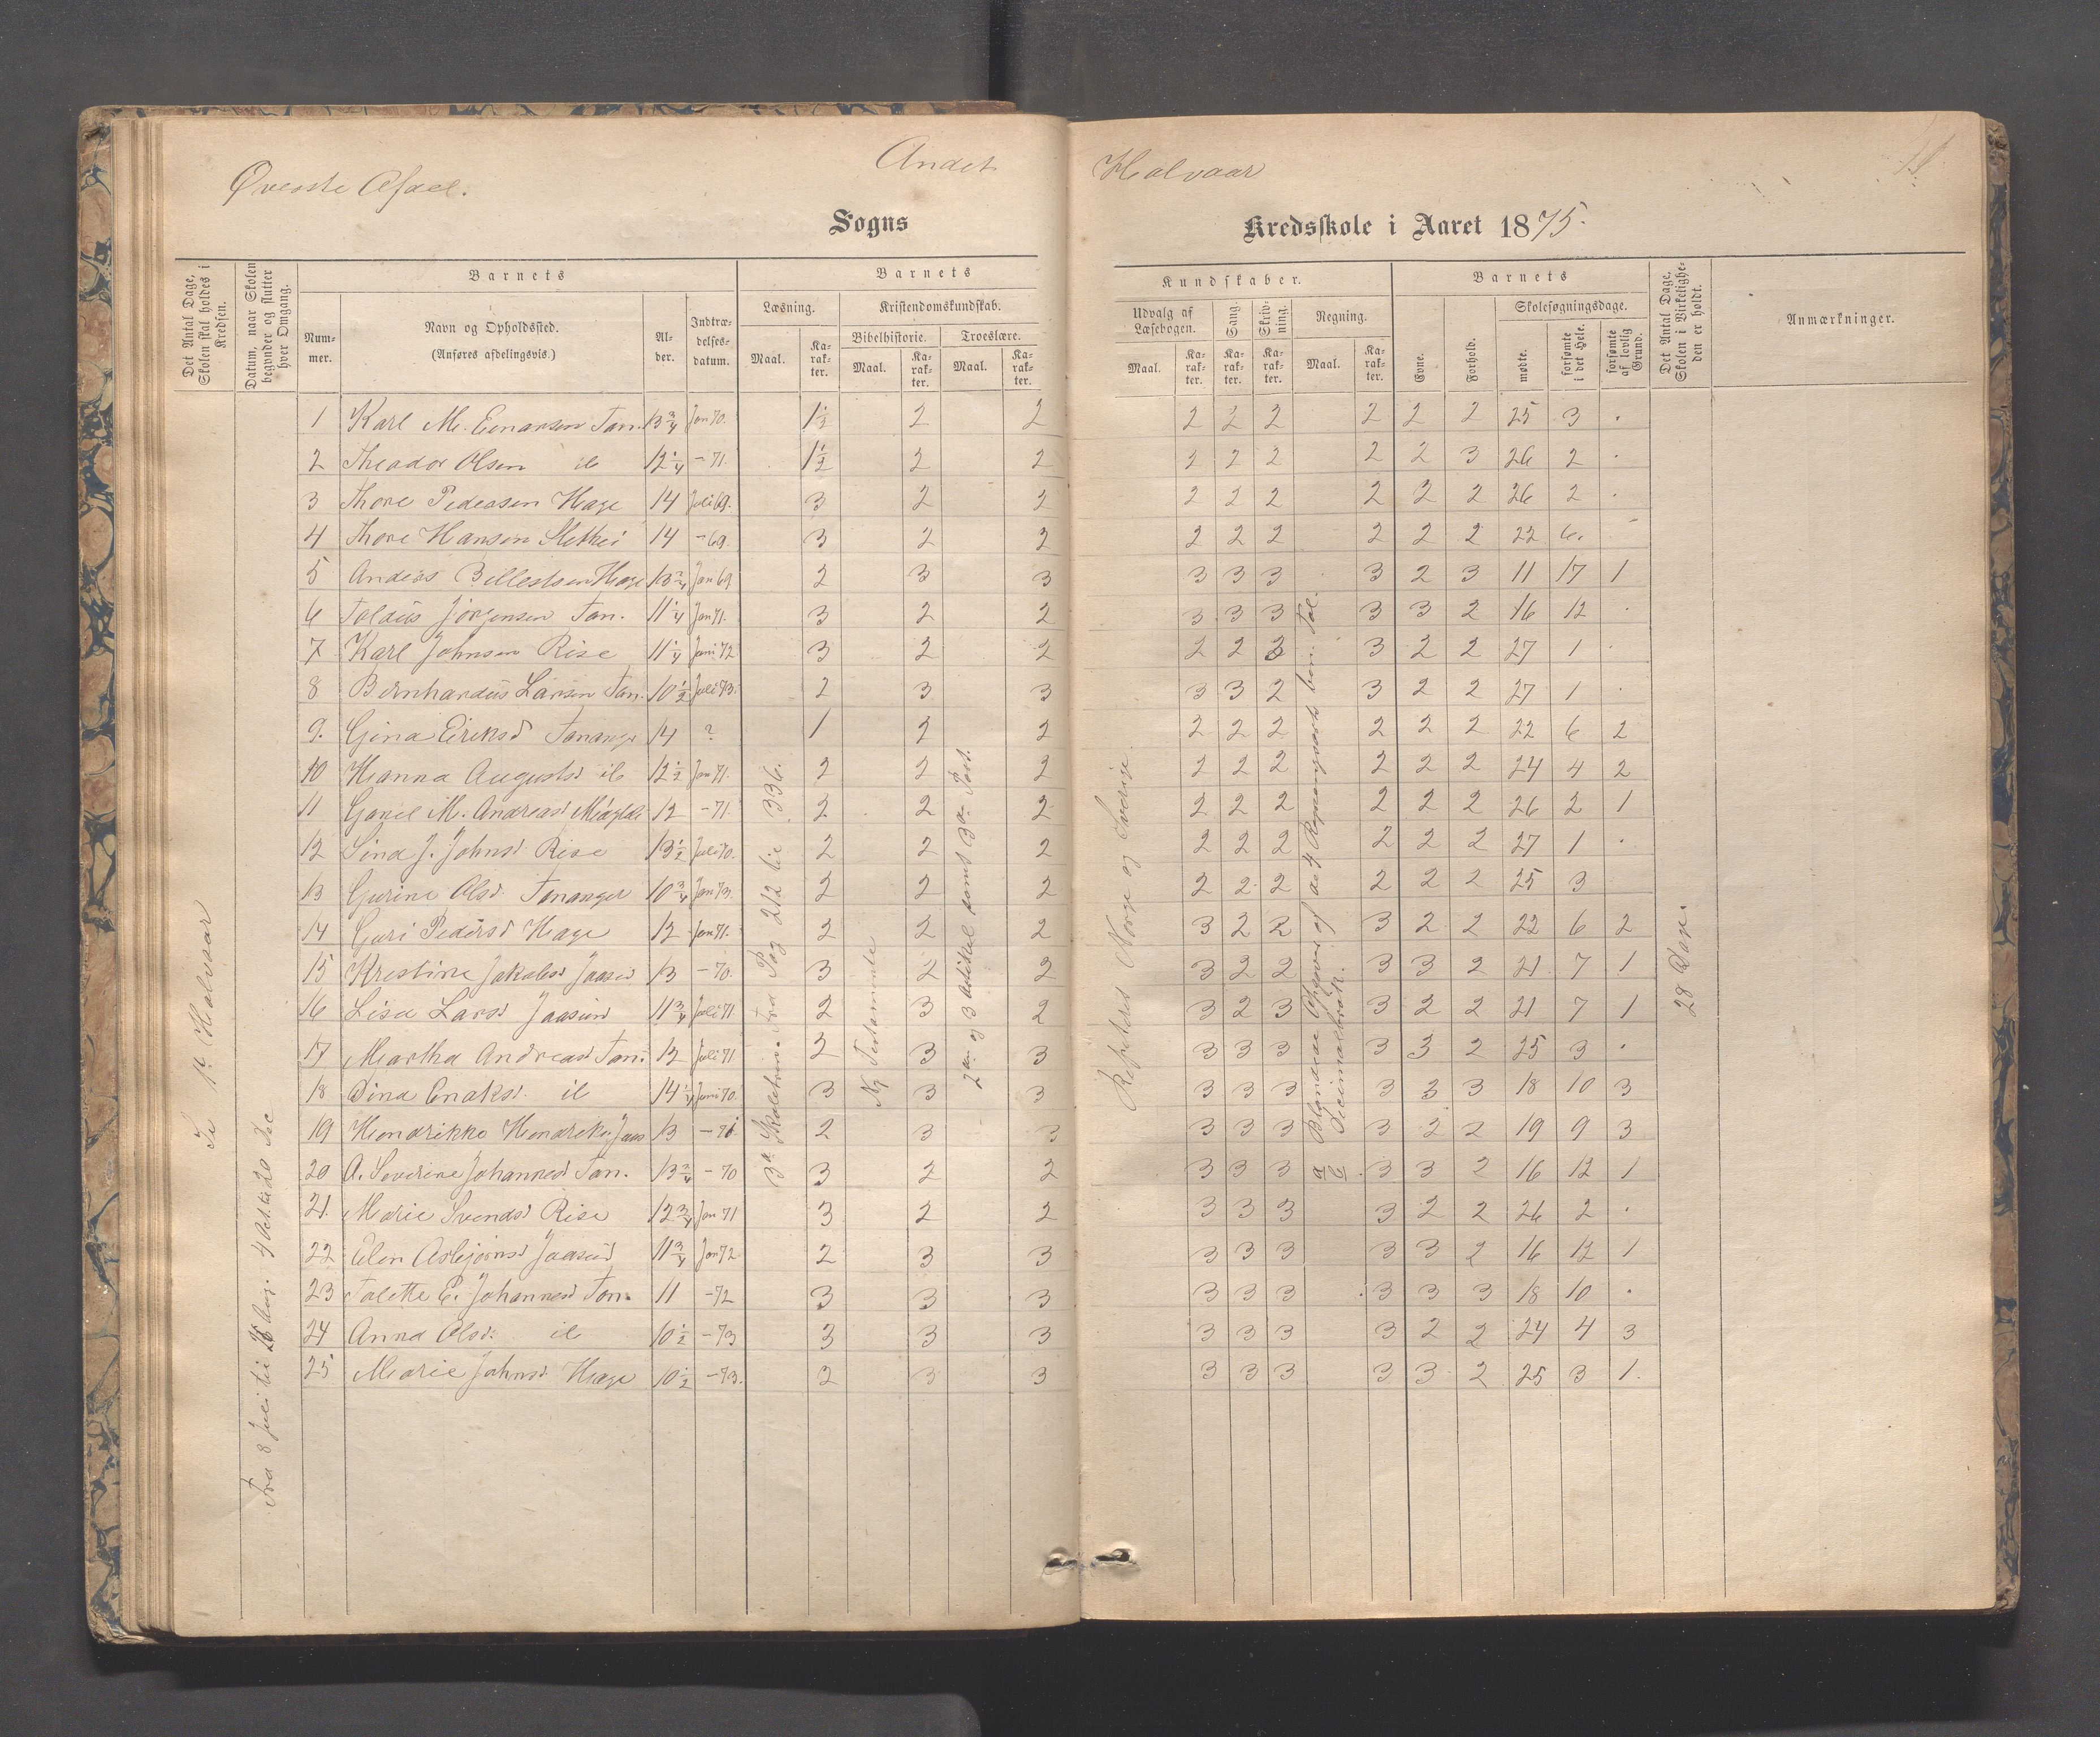 Øverste Afdel.
Andet
Halvaar
Sogns
Kredsskole i Aaret 1875.
Det Antal Dage, Skolen skal holdes i Kredsen.
Datum, naar Skolen begynder og slutter hver Omgang.
Barnets
Nummer.
Navn og Opholdssted.
(Anføres afdelingsvis.)
Alder.
Indtrædelsesdatum.
Barnets
Læsning.
Maal.
Karakter.
Kristendomskundskab.
Bibelhistorie.
Maal.
Karakter.
Troeslære.
Maal.
Karakter.
Kundskaber.
Udvalg af Læsebogen.
Maal.
Karakter.
Sang.
Karakter.
Skrivning.
Karakter.
Regning.
Maal.
Karakter.
Barnets
Evne.
Forhold.
Skolesøgningsdage.
mødte.
forsømte i det Hele.
forsømte af lovlig Grund.
Det Antal Dage, Skolen i Virkeligheden er holdt.
Anmærkninger.
1 Karl M. Enarsen Tan. 13 3/4 Jan 70. 1 1/2 2 2 2 2 2 2 2 2 25 3 .
2 Theador Olsen ib 12 1/4 - 71. 1 1/2 2 2 2 2 2 2 2 3 26 2 .
3 Thore Pedersen Hage 14 Juli 69. 3 2 2 2 2 2 2 2 2 26 2 .
4 Thore Hansen 14 - 69. 3 2 2 2 2 2 2 2 2 22 6.
5 Anders Hage 13 3/4 Jan 69 2 3 3 3 3 3 3 2 3 11 17 1
6 Tolaus Jørgensen Tan. 11 1/4 Jan 71. 3 2 2 3 3 3 3 3 2 16 12 .
7 Karl Johnsen Rise 11 1/4 Juni 72 3 2 2 2 2 3 3 2 2 27 1 .
8 Bernhardus Larsen Tan. 10 1/2 Juli 73. 2 3 3 3 3 2 3 2 2 27 1 .
9. Gina Eriksd Tananger 14 ? 1 2 2 2 2 2 2 2 2 22 6 2
10 Hanna Augustsd ib 12 1/2 Jan 71. 2 2 2 2 2 2 2 2 2 24 4 2
11 M. Andreasd 12 - 71. 2 2 2 2 2 2 2 2 2 26 2 1
12 Sina J. Johnsd Rise 13 1/2 Juli 70. 2 2 2 2 2 2 2 2 2 27 1 .
13 Gurine Olsd. Tananger 10 3/4 Jan 73. 2 2 2 2 2 2 2 2 2 25 3
14 Guri Pedersd Hage 12 Jan 71. 2 2 2 3 2 2 3 2 2 22 6 2
15 Krestine Jakobsd Jaasund 13 - 70. 3 2 2 3 2 2 3 3 2 21 7 1
16 Lisa Larsd Jaasund 11 3/4 Juli 71 2 3 2 3 2 3 3 2 2 21 7 1
17 Martha Andreasd Tan. 12 Juli 71 2 3 3 3 3 3 3 3 2 25 3 .
18 Dina Enoksd. ib 14 1/4 Juni 70. 3 3 3 3 3 3 3 3 3 18 10 3
19 Hendrikke Jaas 13 - 71. 2 3 3 3 3 3 3 2 2 19 9 3
20 A. Severine Johannesd Tan. 13 3/4 - 70 3 2 2 3 3 3 3 3 2 16 12 1
21. Marie Svendsd Rise 12 3/4 Jan 71 3 2 2 3 3 3 3 2 2 26 2 .
22 Elen Asbjørnsd Jaasund 11 3/4 Jan 72 2 3 3 3 3 3 3 3 2 16 12 1
23 Tolette E. Johannesd Tan. 11 - 72 3 3 3 3 3 3 3 3 3 18 10 .
24 Anna Olsd. ib 10 1/2 - 73 3 3 3 3 3 3 3 2 2 24 4 3
25 Marie Johnsd. Hage 10 1/2 - 73. 2 3 3 3 3 3 3 3 2 25 3 1.
1t Halvaar
Fra 8 Juli til Aug. 4 Okt. til 20 Dec
3die Skoletrin. Fra Pag 212 til 336.
Ny Testamente
2den og 3 Artikel samt 3die Part.
Repeteret Norge og Sverige.
Blandede Opgaver af de 4 Regningsarter ben. Tal.
Decimalbrøk.
a/b
28 Dage.